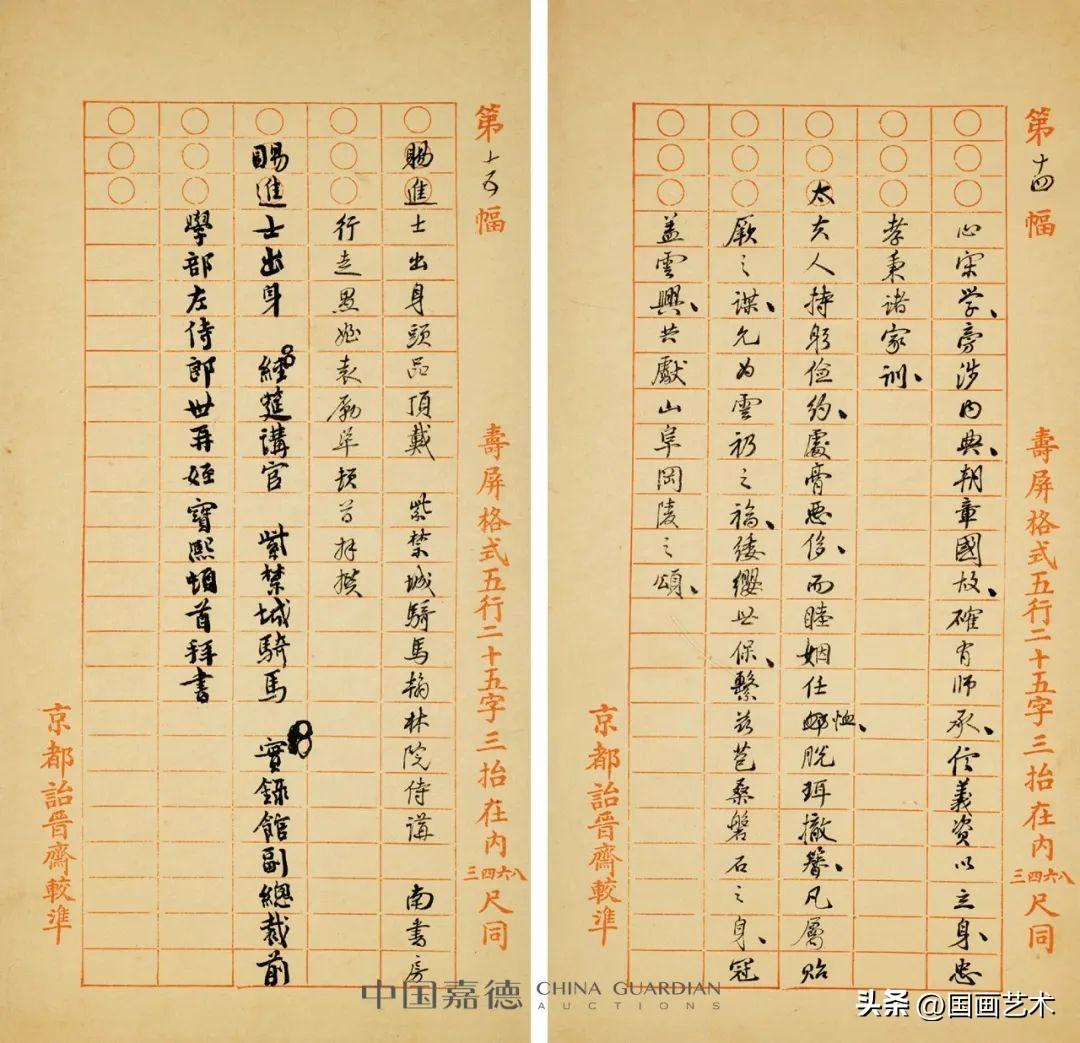 第十四幅
壽屏格式五行二十五字三抬在內三四六八尺同
心宋学、旁涉内典、朝章國故、確有师承、信義資以立身、忠
孝秉诸家训、
太夫人持躬俭约、處膏恶侈、而睦姻任恤、脱珥撤簪、凡屬贻
厥之谋、允为雲礽之福、緌纓世保、繫兹苞桑磐石之身、冠
盖雲興、共獻山阜冈陵之頌、
京都詒晉齋較準
第十五幅
壽屏格式五行二十五字三抬在內三四六八尺同
賜進士出身頭品頂戴 紫禁城騎马翰林院侍講 南書房
行走愚姪袁励準頓首拜撰
賜進士出身 經筵講官 紫禁城騎馬 實錄館副總裁前
學部左侍郎世再姪寶熙頓首拜書
京都詒晉齋較準
中国嘉德 CHINA GUARDIAN AUCTIONS
头条 @国画艺术